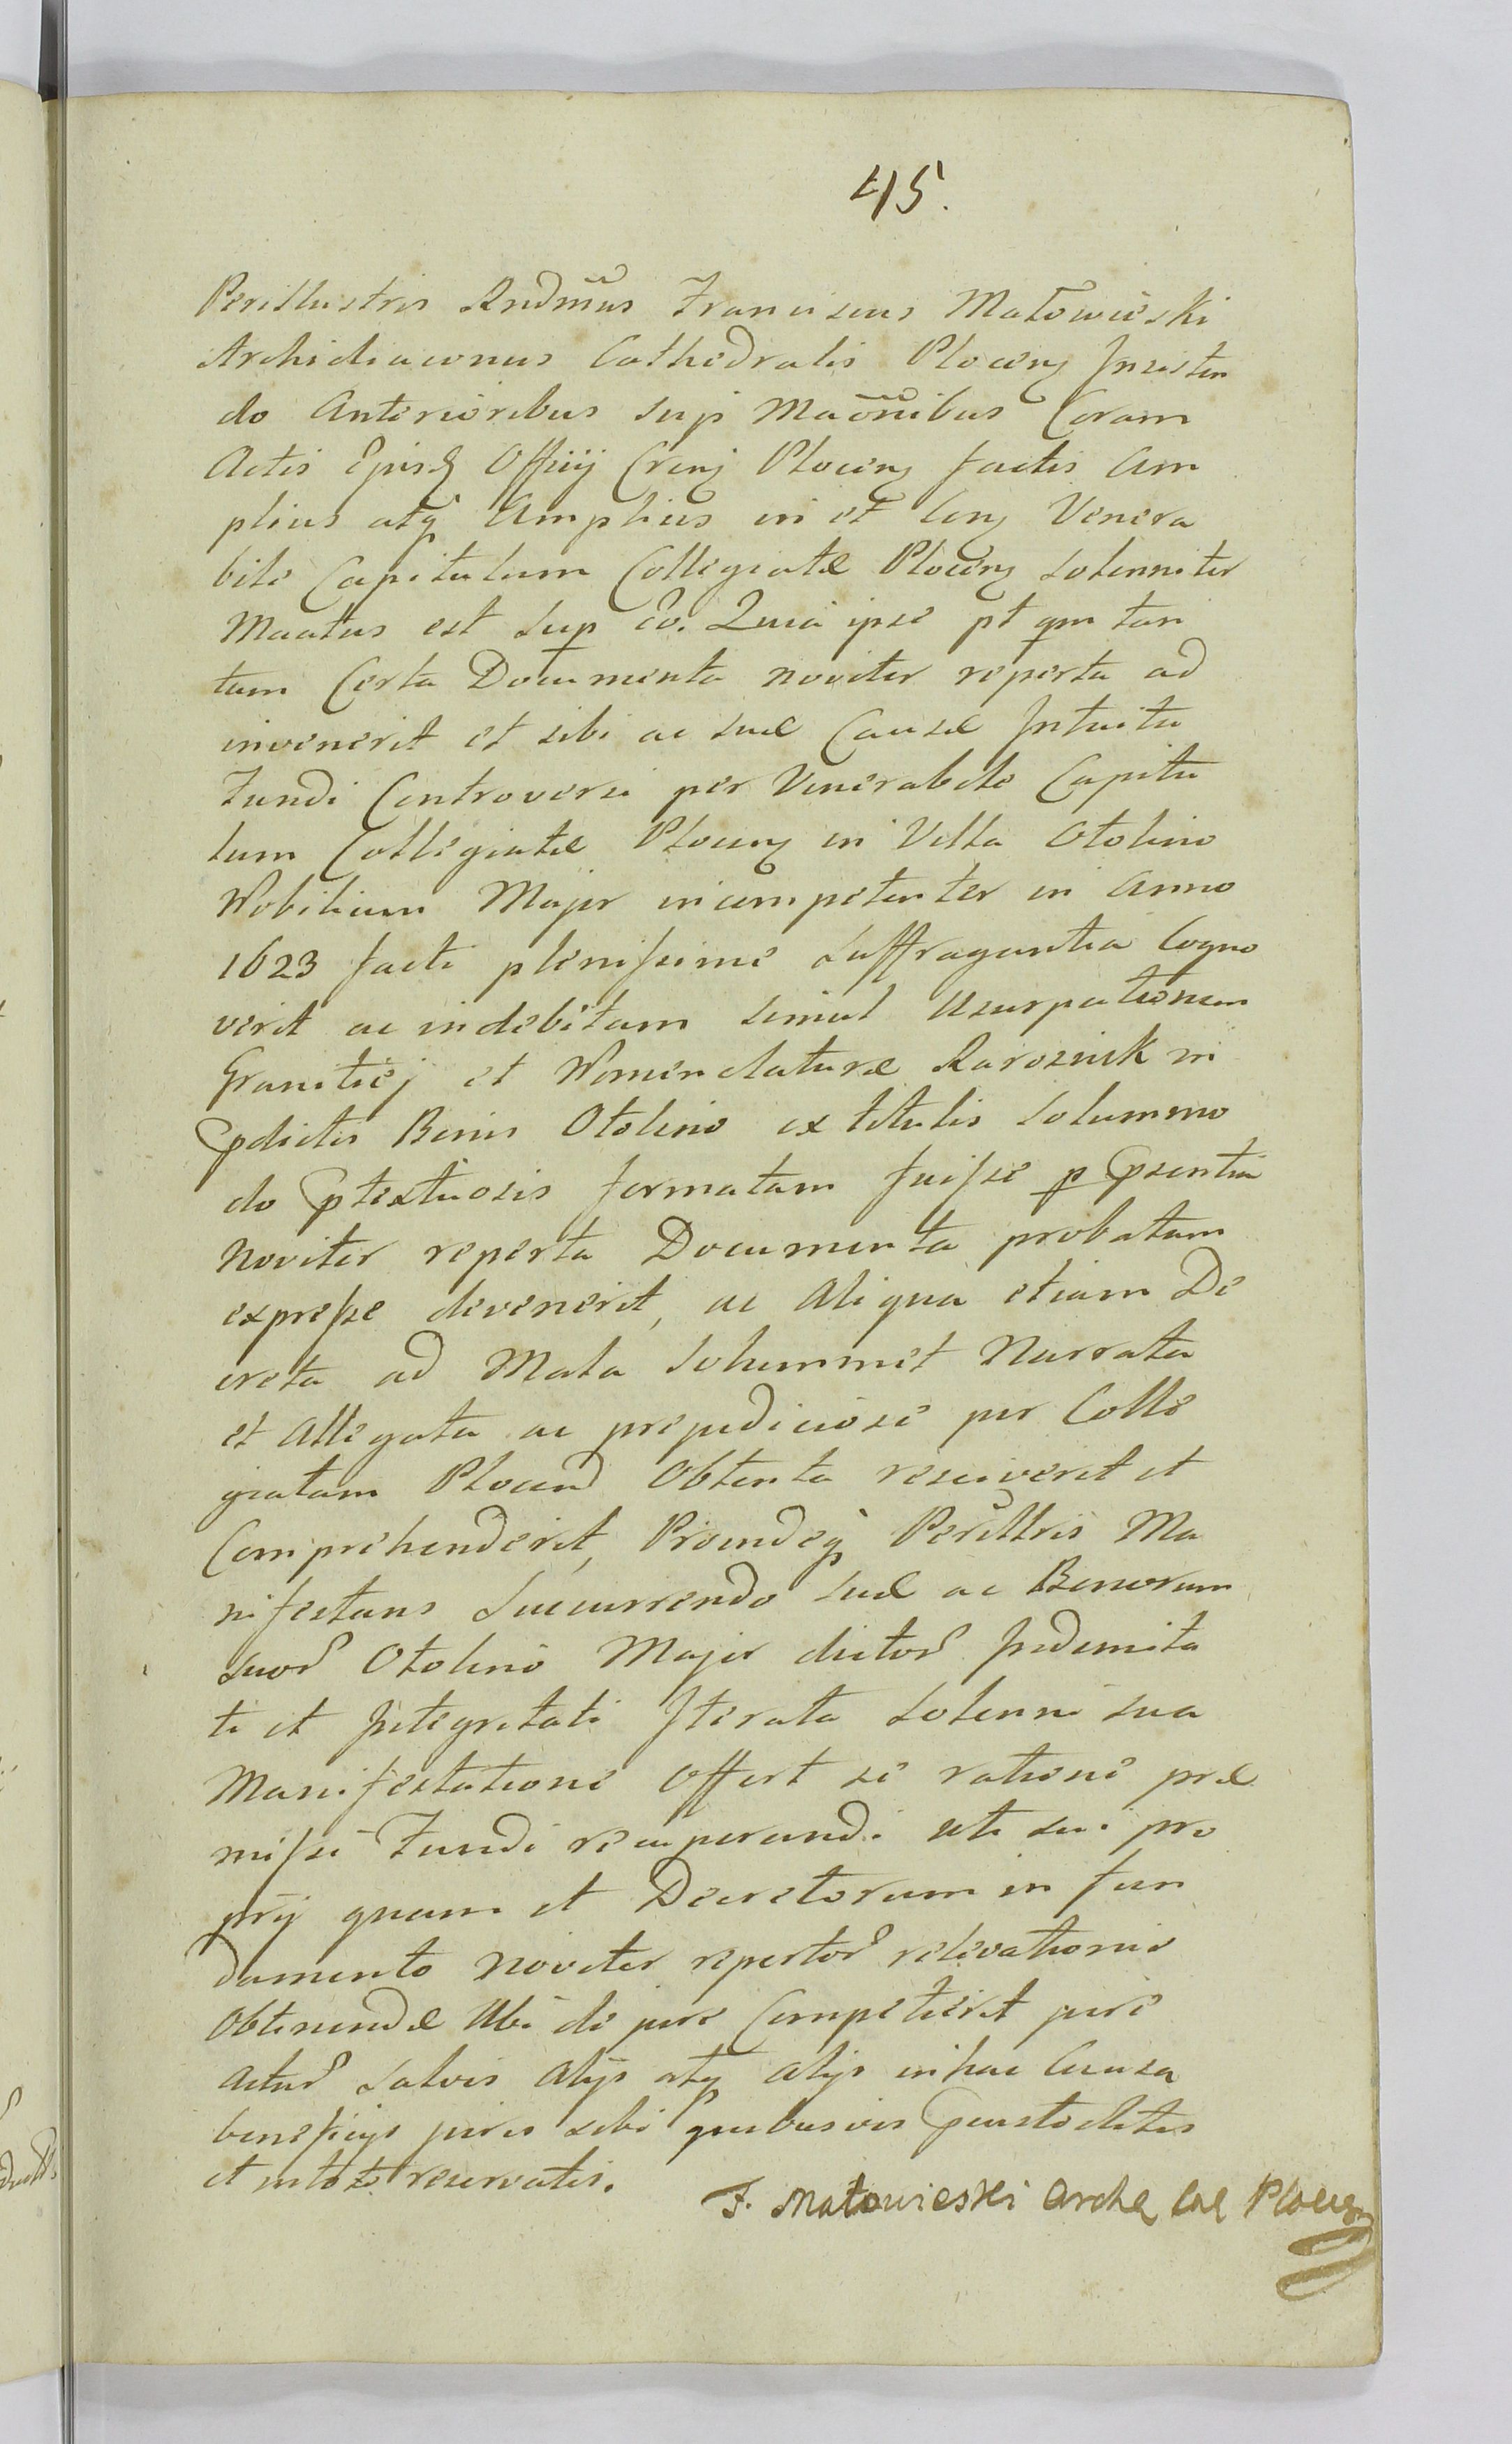 45.
Perillustris Rndm̃us Franciscus Matowieski
Archidiaconus Cathedralis Plocen̄ Insisten
do Anterioribus sup̱ Maōnibus Coram
Actis Epis Offiij Plocen̄ factis Am
plius atq̱ Amplius in et Venera
bile Capitulum Collegiatæ Plocen̄ solenniter
Maatus est sup̱ eo. Quia ipse pt qm tan
tum Certa Documenta noviter reperta ad
invenerit et sibi ac suæ Causæ Intuitu
Fundi Controversi per Venerabile Capitu
lum Collegiatæ Plocen̄ in Villa Otolino
Nobilium Major incompetenter in Anno
1623 facti plenissime suffragantia Cogno
verit ac indebitam simul Usurpationem
Graniciej et Nomenclaturæ Karoznik in
pdictis Bonis Otolino ex titulis solummo
do ptextuosis formatam fuisse p psentia
Noviter reperta Documenta probatam
expresse devenerit, ac Aliqua etiam De
creta ad Mala solummet Narrata
et Allegata ac prejudiciose per Colle
giatam Obtenta resciverit et
Comprehenderit, Proindeq̱ Perilltris Ma
nifestans Succurrendo suæ ac Bonorum
suor̄ Otolino Major dictor̄ Indemnita
ti et Integritati Iterata solenni sua
Manifestatione offert se ratione præ
missi Fundi recuperandi uti sui pro
prij quam et Decretorum in fun
damento Noviter repertor̄ relevationis
Obtinendæ Ubi de jure Competierit jure
Actur̄ salvis Alijs atq̱ Alijs in hac Causa
beneficijs juris sibi quibusvis pcustoditis
et in toto reservatis.
F. Matowieski Archꝫ Plocen̄